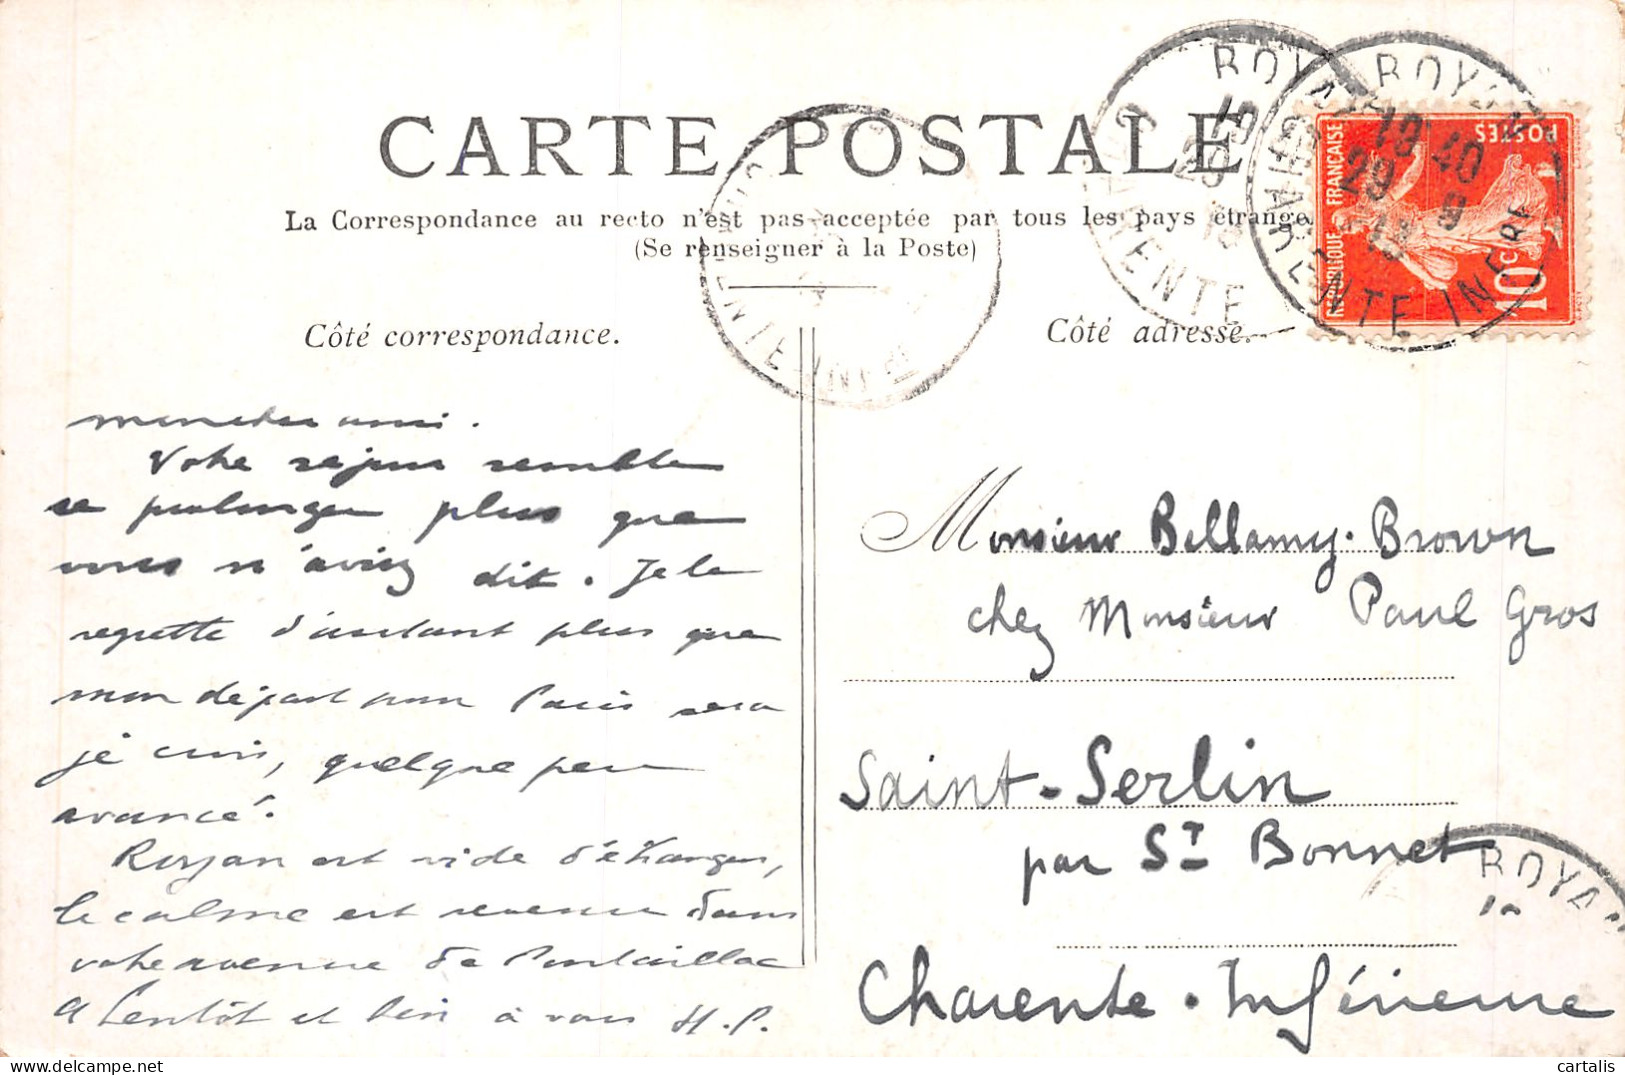 CARTE POSTALE
La Correspondance au recto n'est pas acceptée par tous les pays étrange
(Se renseigner à la Poste)
Côté correspondance.
Côté adresse.
REPUBLIQUE FRANÇAISE
POSTES
10c
ROYAN
CHARENTE INFRE
18 40
29 9
13
ROYA
.
Votre séjour semble
se prolonger plus que
vous n'aviez dit. Je le
regrette d'autant plus que
mon départ pour Paris sera
je crois, quelque peu
avancé.
Royan est vide d'étrangers,
le calme est revenu dans
votre avenue de Pontaillac
A bientôt et bien à vous H.P.
Monsieur Bellamy-Brown
chez Monsieur Paul Gros
Saint-Serlin
par St Bonnet
Charente-Inférieure
ROYA
cartalis